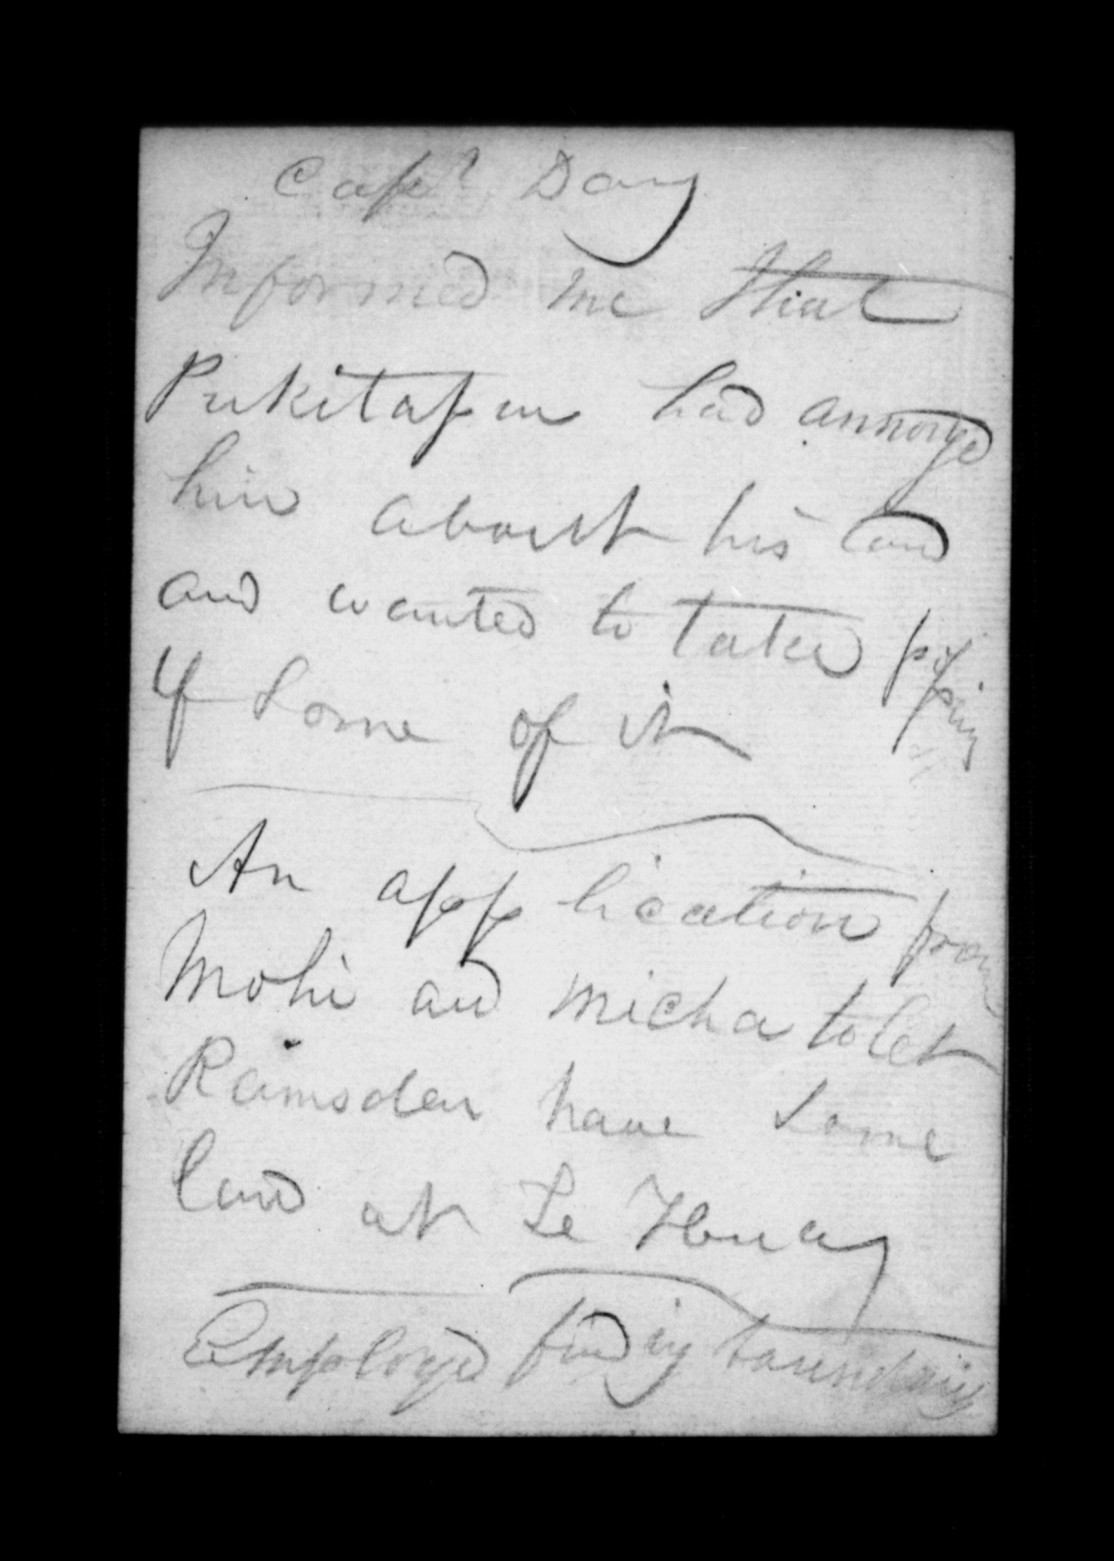 Capt Davy
Informed me that
Pukitapu had annoyed
him about his land
and wanted to take
of some of it
An application from
Mohi and Micha to let
Ramsden have some
land at Te
Employed finding boundary